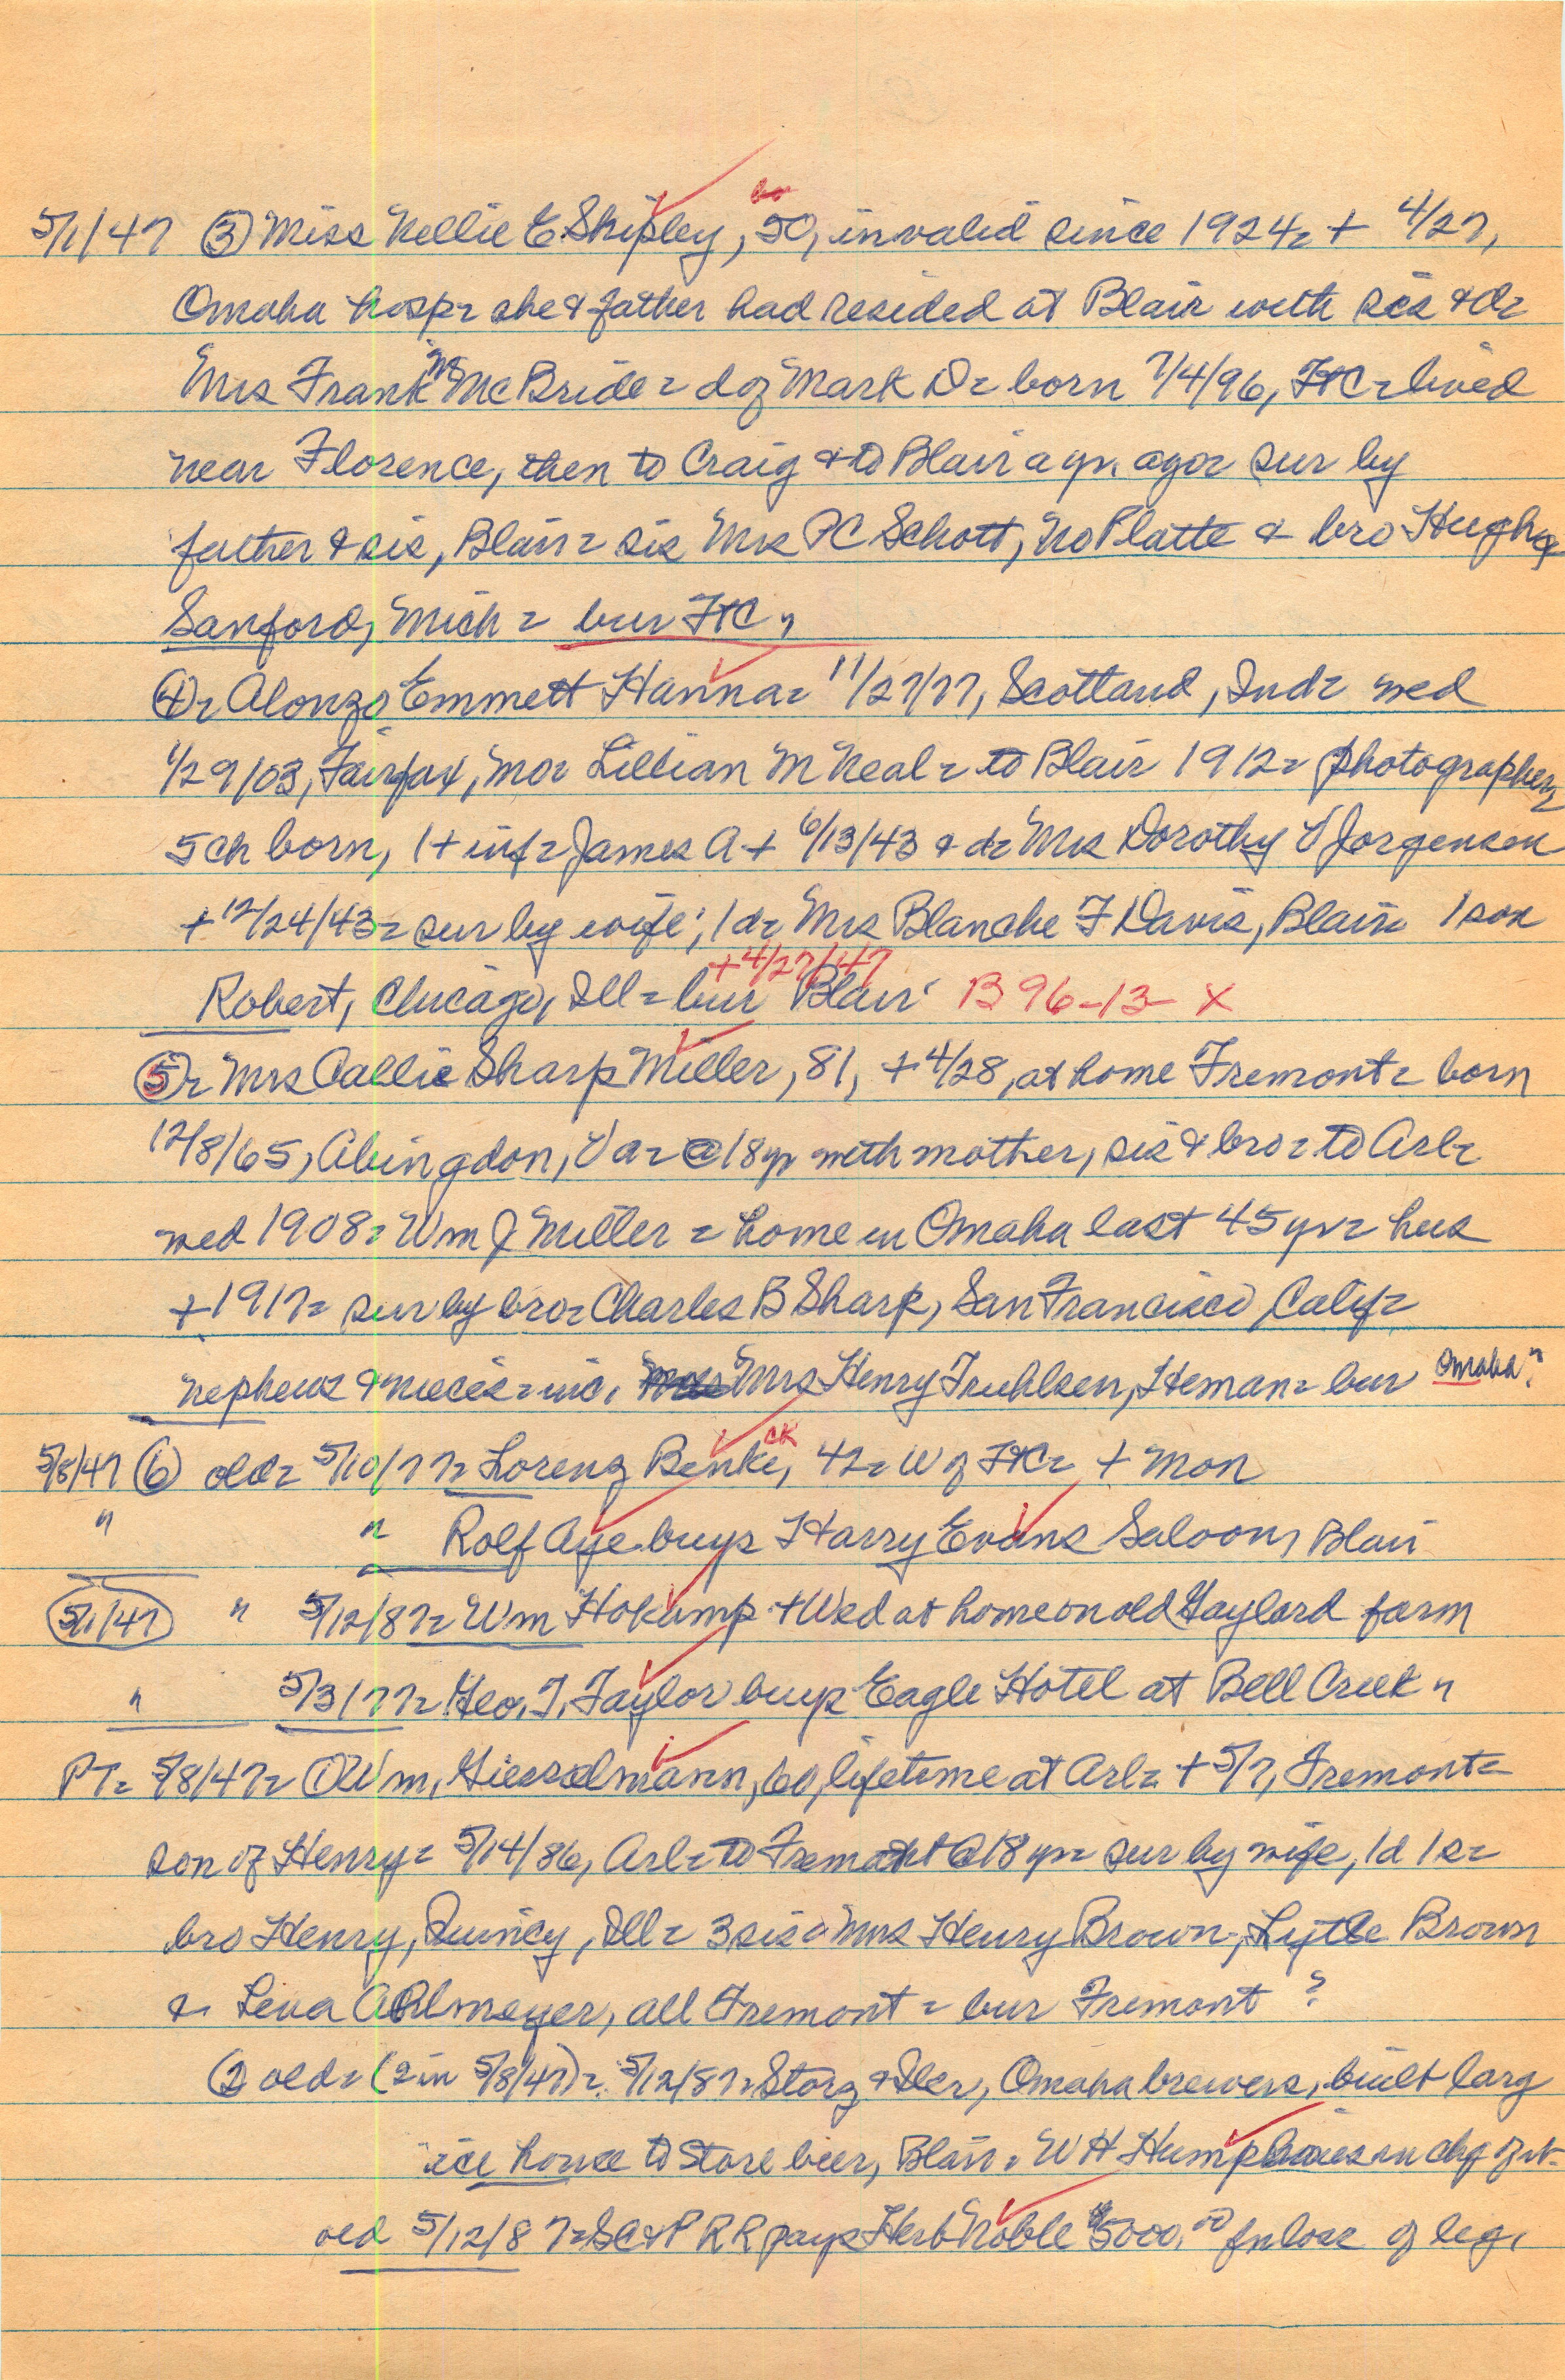 5/1/47 ③ Miss Nellie E Shipley, 50, invalid since 1924 = + 4/27,
Omaha hosp = she & father had resided at Blair with sis & d =
Mrs Frank M McBride = d of Mark D = born 7/4/96, FtC = lived
near Florence, then to Craig & to Blair a yr. ago = sur by
father & sis, Blair = sis Mrs PC Schott, No Platte & bro Hugh,
Sanford, Mich = bur FtC "
④ = Alonzo Emmett Hanna = 11/27/77, Scotland, Ind = wed
1/29/03, Fairfax, Mo = Lillian M Neal = to Blair 1912 = photographer =
5 ch born, 1 + inf = James A + 6/13/43 & d = Mrs Dorothy V Jorgensen
+ 12/24/43 = sur by wife; 1 d = Mrs Blanche F Davis, Blair = 1 son
+ 4/27/47
Robert, Chicago, Ill = bur Blair B 96-13- X
⑤ = Mrs Callie Sharp Miller, 81, + 4/28, at home Fremont = born
12/8/65, Abingdon, Va = @ 18 yr with mother, sis & bro = to Arl =
wed 1908 = Wm J Miller = home in Omaha last 45 yr = hus
+ 1917 = sur by bro = Charles B Sharp, San Francisco, Calif =
nephews & nieces = inc. Mrs Henry Truhlsen, Herman = bur Omaha "?
5/8/47 ⑥ old = 5/10/77 = Lorenz Benke, ck 42 = W of FtC = + Mon
" " Rolf Aye buys Harry Evans Saloon, Blair
5/1/47 " 5/12/87 = Wm Hokamp + Wed at home on old Gaylord farm
" 5/3/77 = Geo. T. Taylor buys Eagle Hotel at Bell Creek "
PT = 5/8/47 = ① Wm. Gieselmann, 60, lifetime at Arl = + 5/7, Fremont =
son of Henry = 5/14/86, Arl = to Fremont @ 18 yr = sur by wife, 1 d 1 s =
bro Henry, Quincy, Ill = 3 sis = Mrs Henry Brown, Lytle Brown
& Lena Ahlmeyer, all Fremont = bur Fremont ?
② old = (2 in 5/8/47) = 5/12/87 = Storz & Iler, Omaha brewers, built larg
ice house to store beer, Blair = W H Humphries in chg of it -
old 5/12/87 = SC&P RR pays Herb Noble $5000.00 for loss of leg.